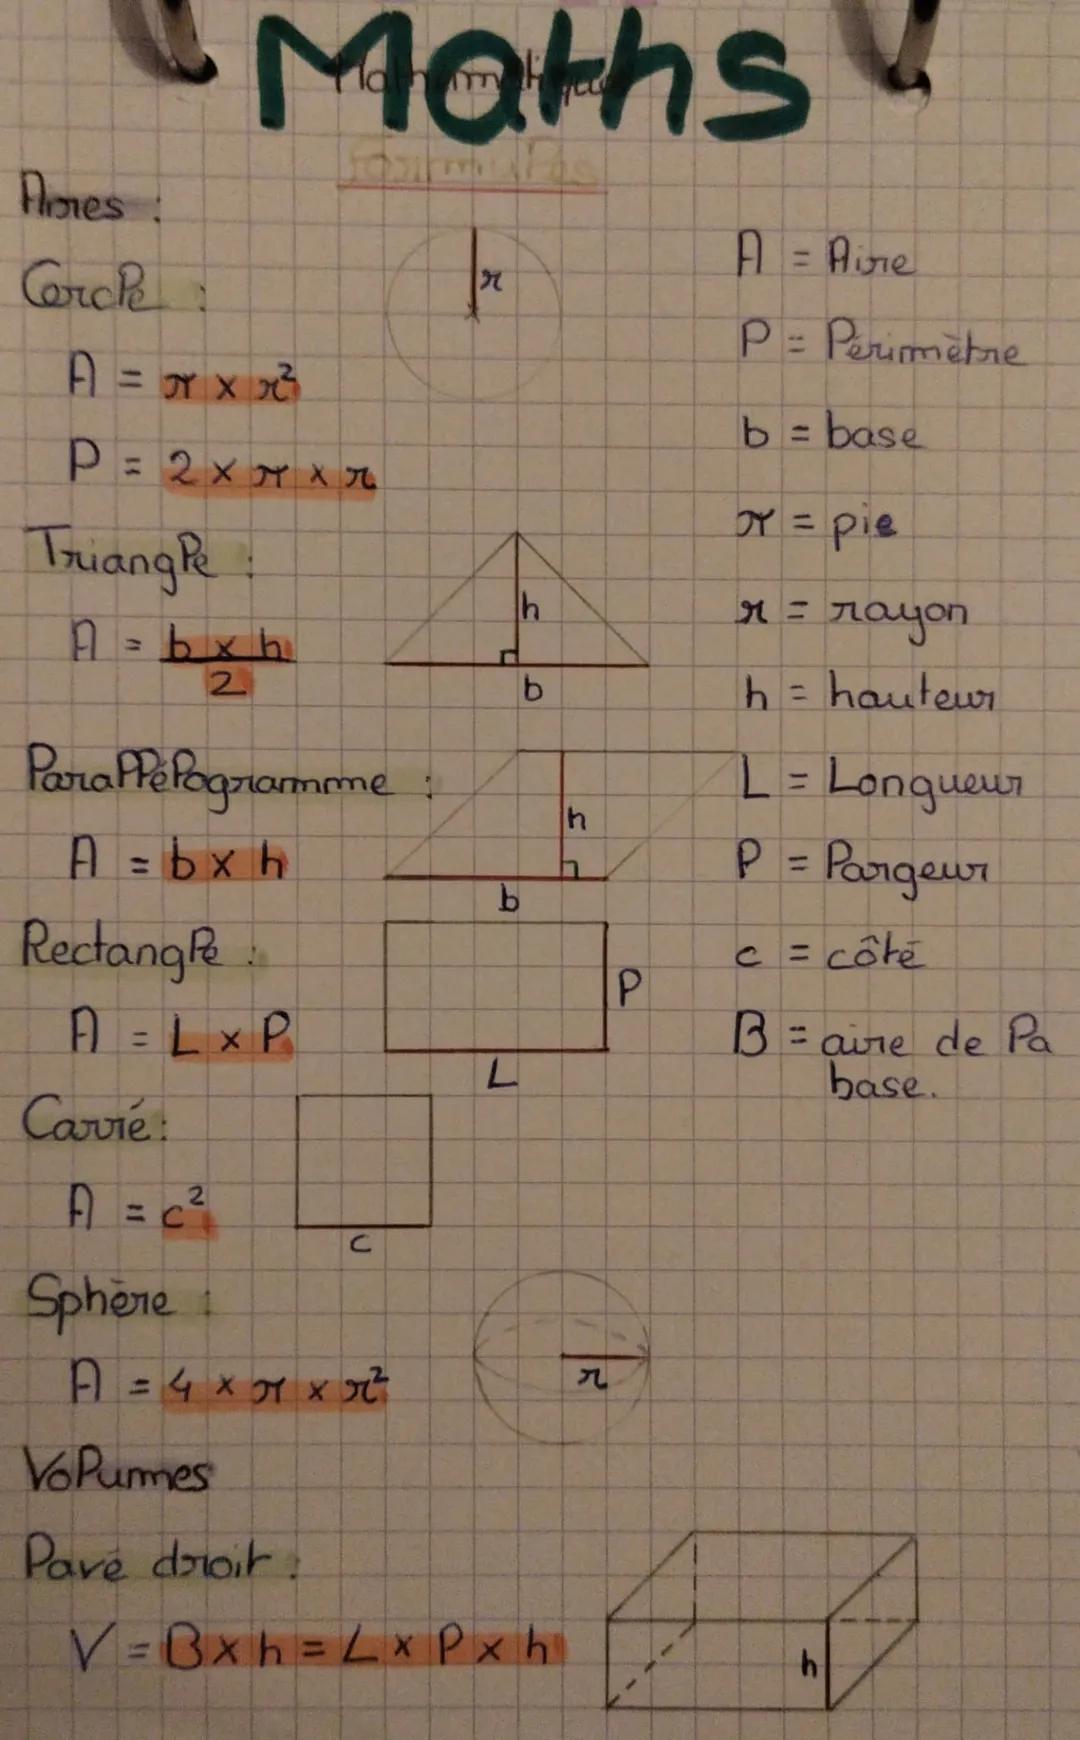 Maths
Mathématiques
Formules
Aires :
Cercle :
r
A = π x r²
P = 2 x π x r
Triangle :
h
A = b x h
2
b
Parallélogramme :
h
A = b x h
b
Rectangle :
l
A = L x l
L
Carré :
A = c²
c
Sphère :
r
A = 4 x π x r²
Volumes
Pavé droit :
V = B x h = L x l x h
h
A = Aire
P = Périmètre
b = base
π = pie
r = rayon
h = hauteur
L = Longueur
l = largeur
c = côté
B = aire de la
base.